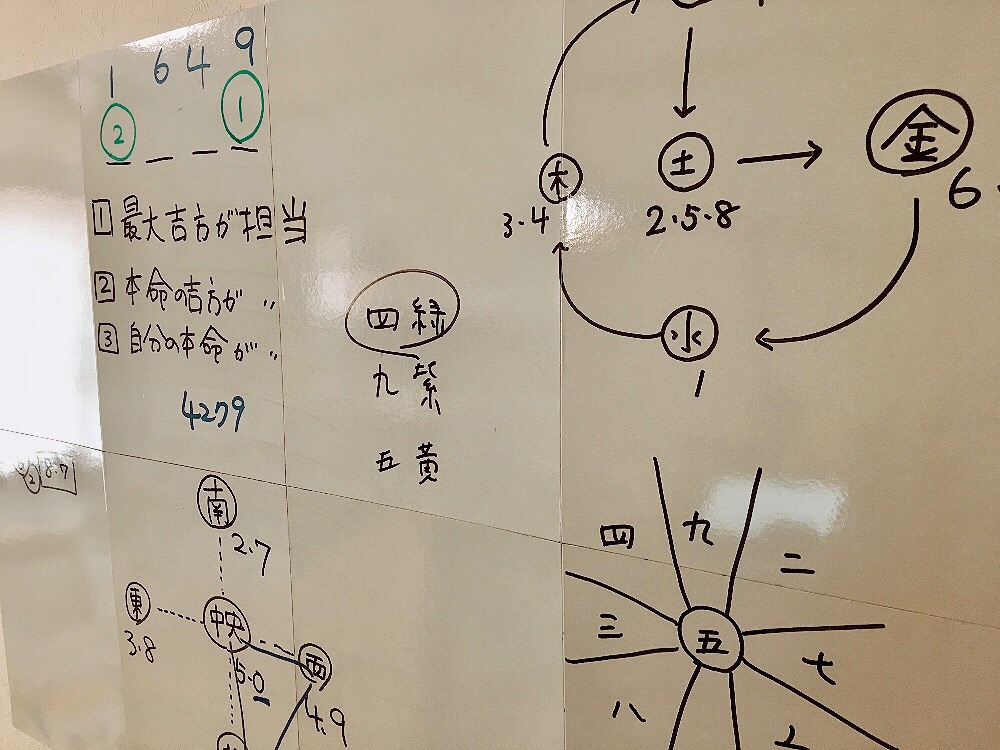 1 6 4 9
② ①
1 最大吉方が担当
2 本命の吉方が 〃
3 自分の本命が 〃
4279
8.7
南
2.7
東
3.8
中央
5.0
西
4.9
四緑
九紫
五黄
木
3.4
土
2.5.8
金
6.
水
1
四 九 二
三 五 七
八